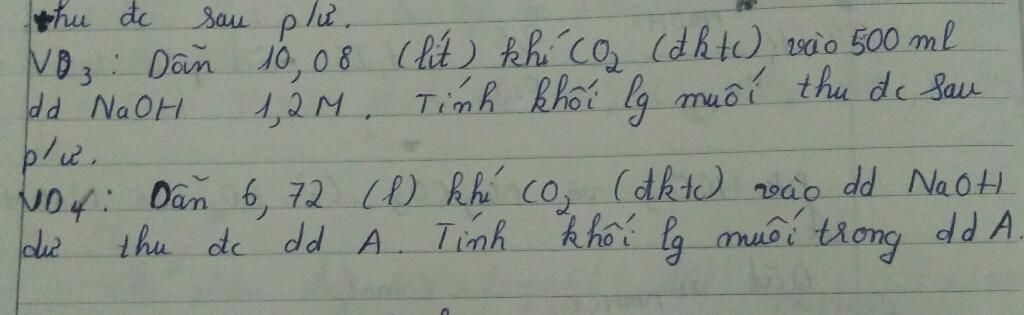 thu dc sau p/ư.
VD3: Dẫn 10,08 (lít) khí CO2 (đktc) vào 500 ml
dd NaOH 1,2M. Tính khối lg muối thu dc sau
p/ư.
VD4: Dẫn 6,72 (l) khí CO2 (đktc) vào dd NaOH
dư thu dc dd A. Tính khối lg muối trong dd A.